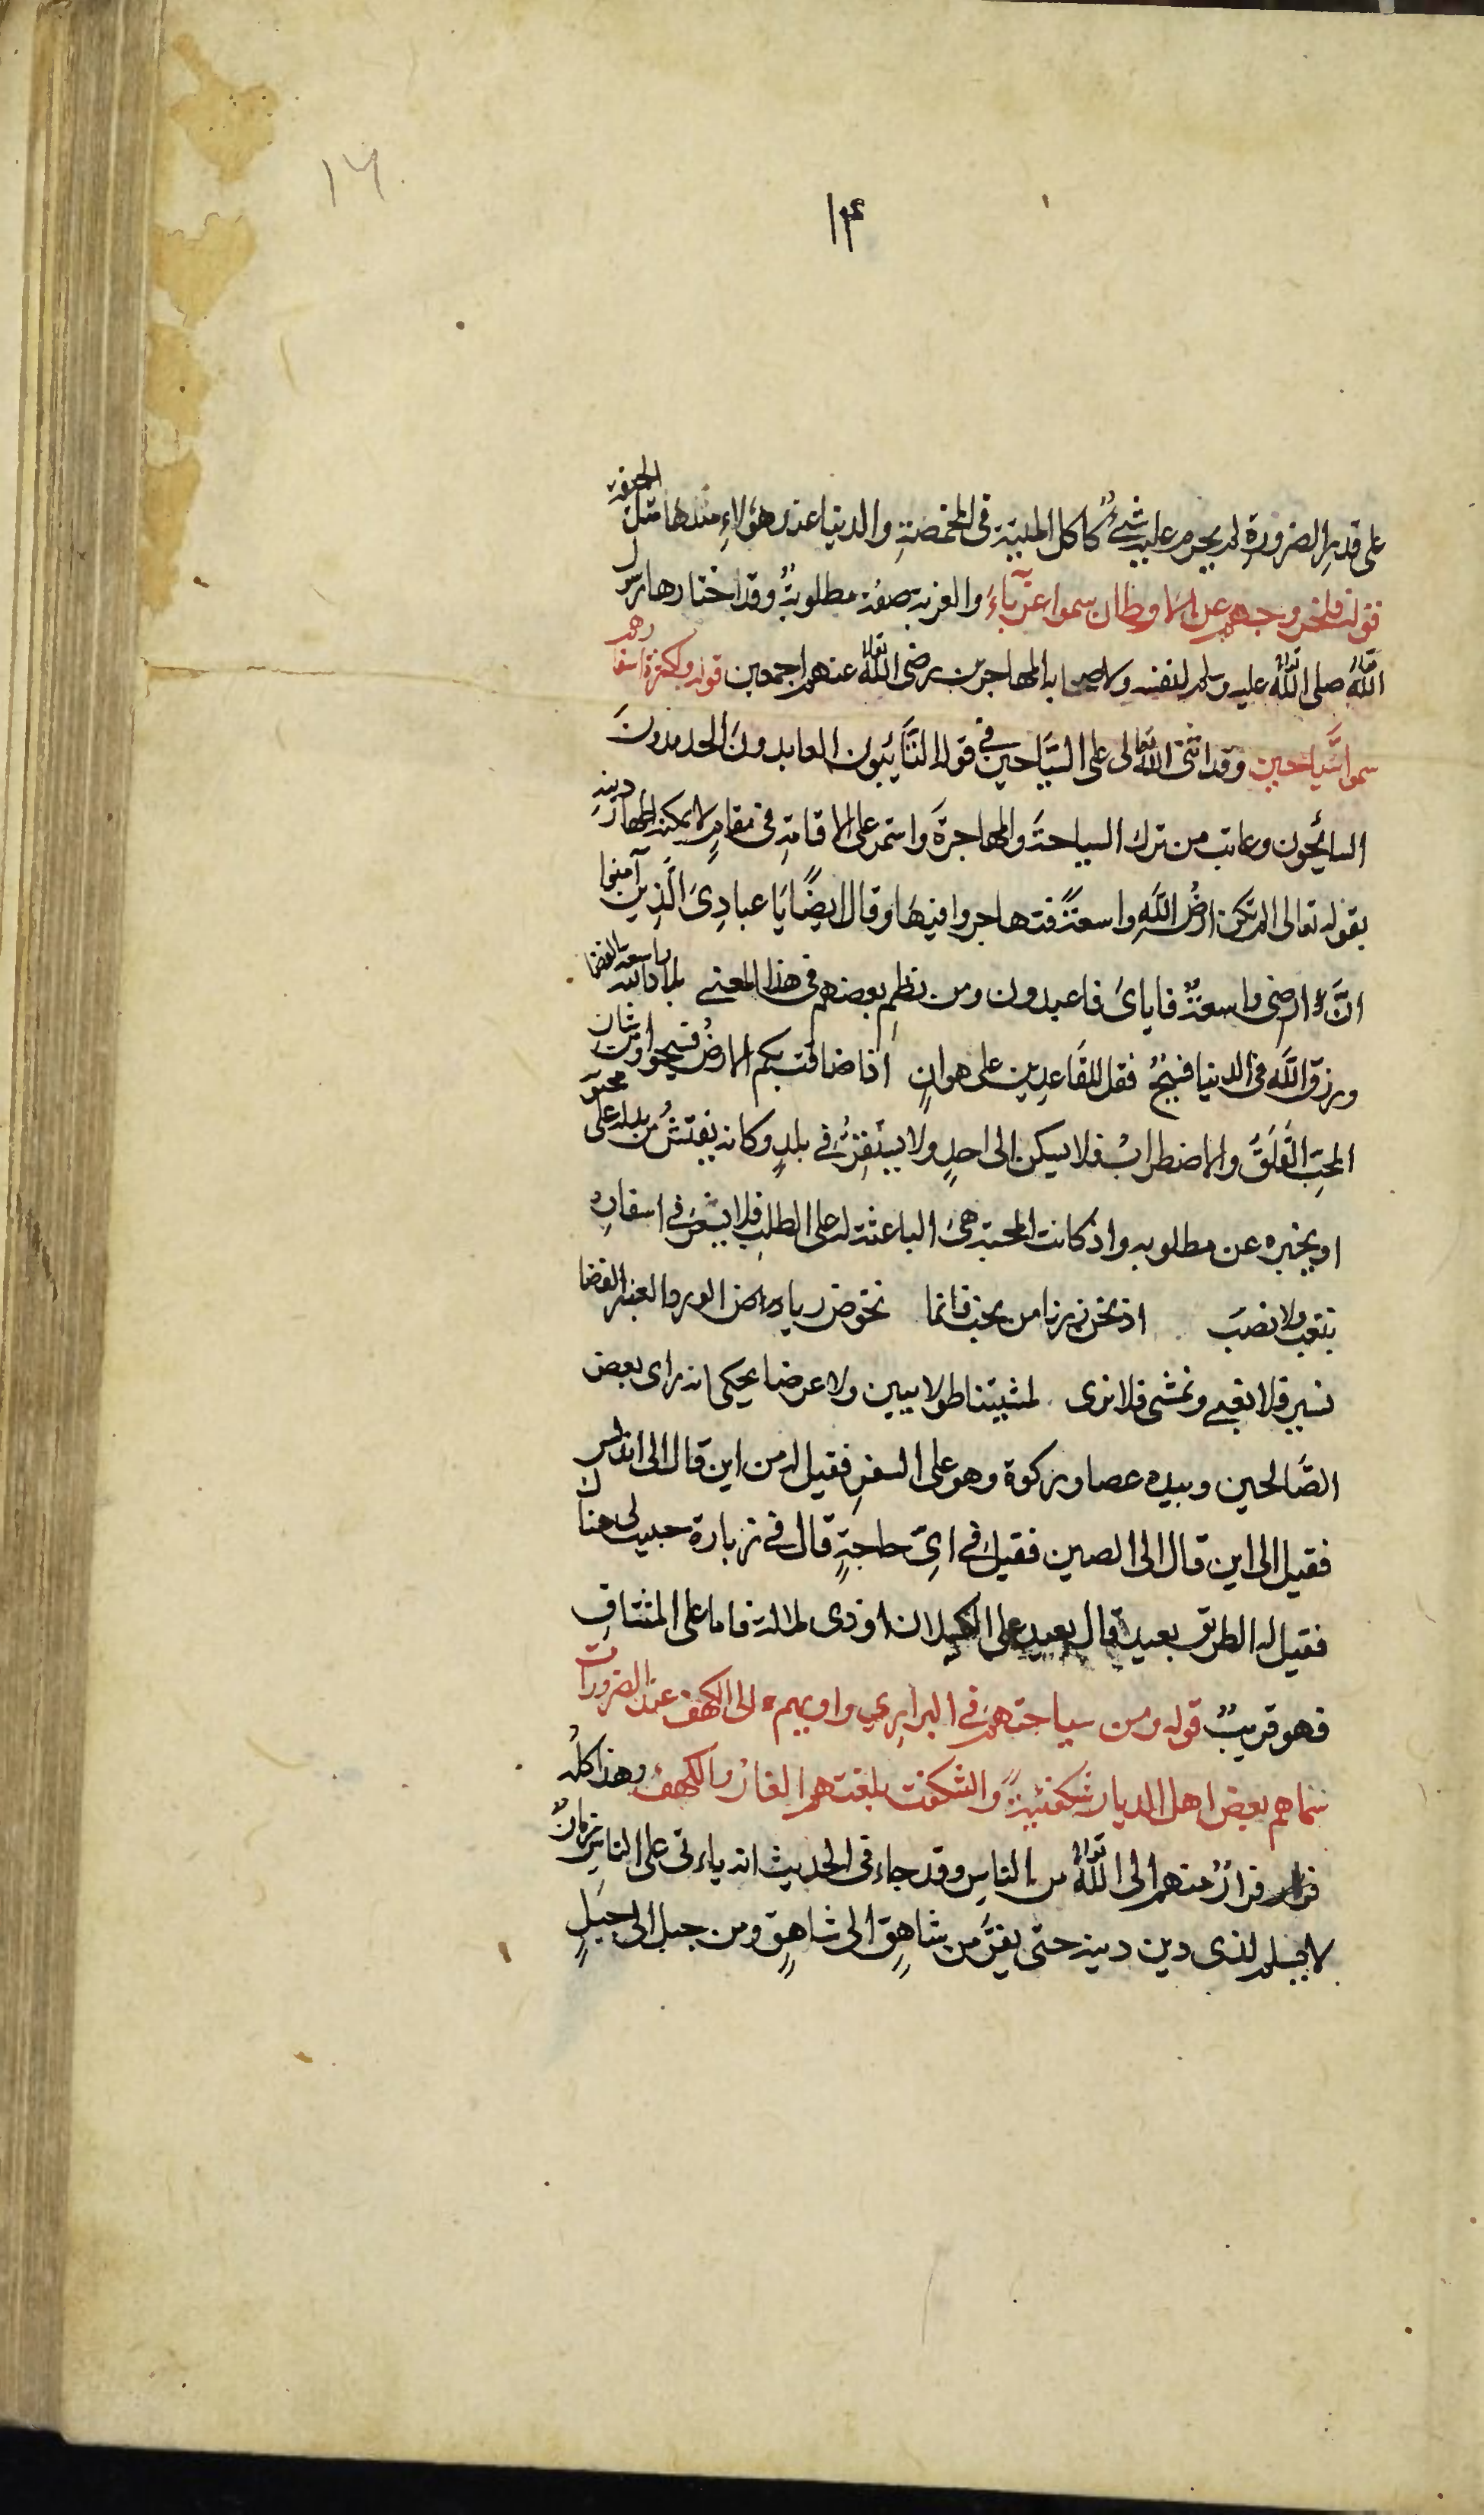 ١٦
١٤
على قدر الضرورة لم يحرم عليه شيء كاكل الميتة في المخمصة والدنيا عند هؤلاءِ مثلها مثل الجيفة
قوله فلخروجهم عن الاوطان سموا غرباءَ والغربة صفة مطلوبةٌ وقد اختارها رسول
الله صلى الله تعالى عليه وسلم لنفسه ولاصحابه المهاجرين رضى الله تعالى عنهم اجمعين قوله ولكثرة اسفارهم
سموا سَّياحين وقد اثنى الله تعالى على السَّيَّاحين في قوله التَّائبون العابدونَ الحامدونَ
السائحون وعاتب من ترك السياحةَ والمهاجرةَ واستمر على الاقامةِ في مقامٍ لا يمكنه اظهار دينهِ
بقوله تعالى الم تكن ارضُ اللهِ واسعةً فتهاجروا فيهَا وقال ايضًا يَا عبادِىَ الَّذين آمنوا
انَّ ارضى واسعةٌ فاياىَ فاعبدون ومن نظمِ بعضهم في هذا المعنى بلاد الله واسعة الفضا
ورزق اللهِ في الدنيا فسيحٌ فقل للقَاعدِين على هوانٍ اذا ضاقت بكم الارضُ فسيحوا ومن شان
المحِبِّ القَلَقُ والاضطرابُ فلا يسكن الى احدٍ ولا يستقرُّ في بلدٍ وكانه يفتشُ من يدله على محبوبه
او يخبره عن مطلوبه واذ كانت المحبة هىَ الباعثة له على الطلبِ فلا يشعرُ في اسفارهِ
بتعب ولا نصبَ اذ نحن زرنا من نحب فانما نخوض رياض الورد والعنبر الغضا
نسير فلا نعيى ونمشى فلا نرى لمشيتنا طولا يبين ولا عرضا يحكى انه راى بعض
الصَّالحين وبيده عصا وركوة وهو على السفرِ فقيل له من اين قال الى اندلس
فقيل الى اين قال الى الصين فقيل في اىِّ حاجةٍ قال في زيارة حبيب لى هناك
فقيل له الطريق بعيدة قال بعيد على الكسلان او ذى ملالة فاما على المشتاقِ
فهو قريبٌ قوله ومن سياحتهمْ في البرارى واويهم الى الكهف عند الضرورات
سماهم بعض اهل الديار شكفتيةً والشكفت بلغتهم الغارُ والكهف وهذا كلُه
فرار منهم الى الله تعالى من الناسِ وقد جاء في الحديث انه ياءتى على الناسِ زمانٌ
لا يسلم لذى دين دينه حتى يفرَّ من شاهِقٍ الى شاهِقٍ ومن جبل الى جبَلٍ